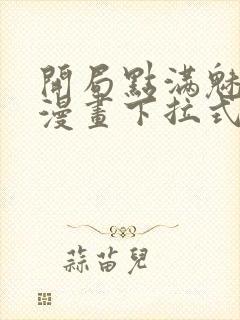 開局點滿魅
漫畫下拉式
蒜苗兒